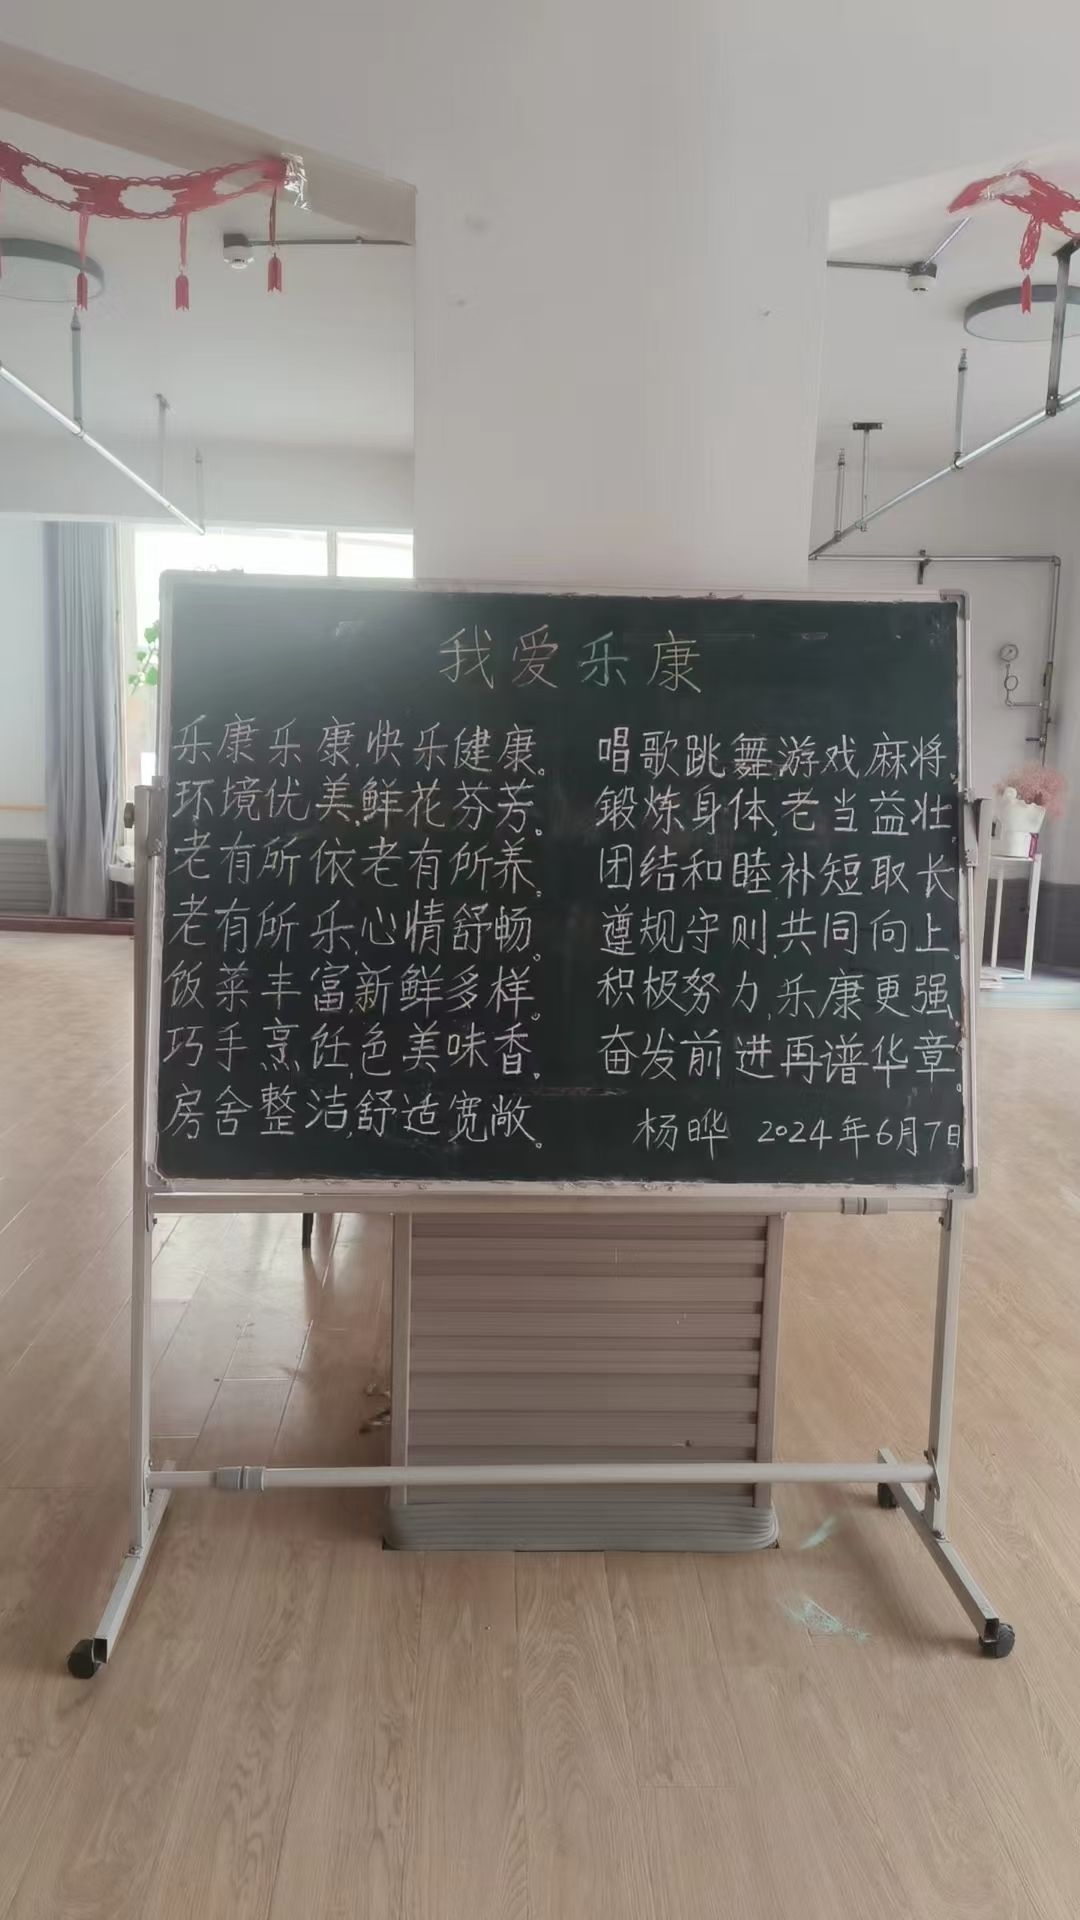 我爱乐康
乐康乐康,快乐健康。
环境优美,鲜花芬芳。
老有所依,老有所养。
老有所乐,心情舒畅。
饭菜丰富,新鲜多样。
巧手烹饪,色美味香。
房舍整洁,舒适宽敞。
唱歌跳舞,游戏麻将。
锻炼身体,老当益壮
团结和睦,补短取长
遵规守则,共同向上。
积极努力,乐康更强。
奋发前进,再谱华章。
杨晔 2024年6月7日